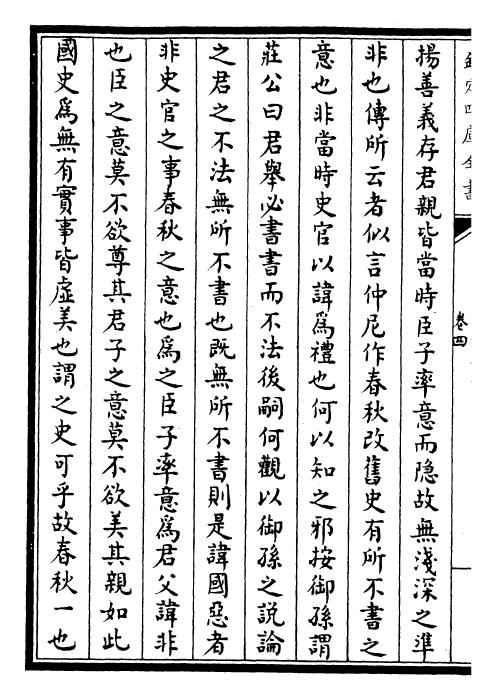 欽定四庫全書
卷四
揚善義存君親皆當時臣子率意而隐故無淺深之準
非也傳所云者似言仲尼作春秋改舊史有所不書之
意也非當時史官以諱為禮也何以知之邪按御孫謂
莊公曰君舉必書書而不法後嗣何觀以御孫之說論
之君之不法無所不書也既無所不書則是諱國惡者
非史官之事春秋之意也為之臣子率意為君父諱非
也臣之意莫不欲尊其君子之意莫不欲美其親如此
國史為無有實事皆虛美也謂之史可乎故春秋一也